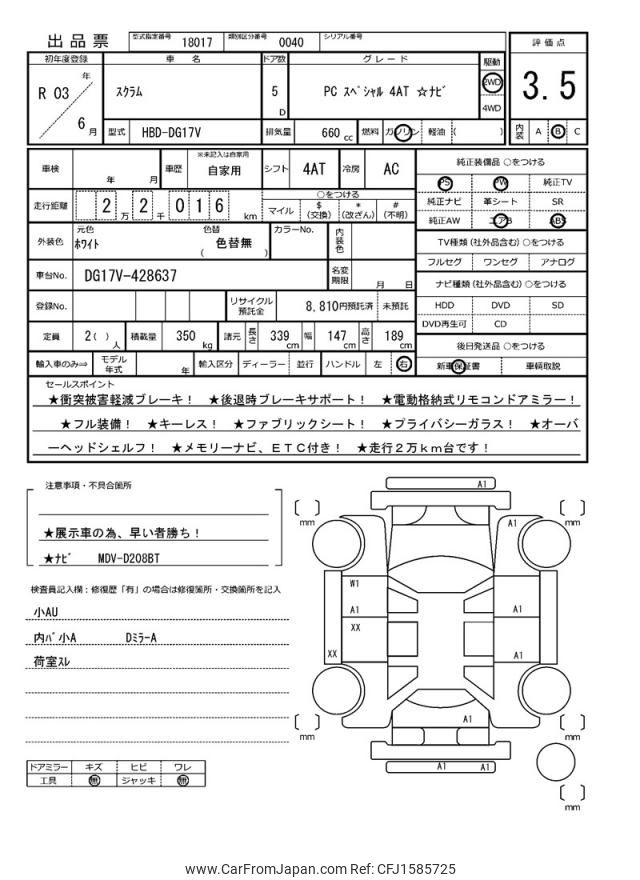 出品票 型式指定番号 18017 類別区分番号 0040 シリアル番号
初年度登録 車名 ドア数 グレード 駆動 評価点
R 03 年 6 月 スクラム 5 D PC スペシャル 4AT ☆ナビ 2WD 4WD 3.5
型式 HBD-DG17V 排気量 660 cc 燃料 ガソリン 軽油 ( ) 内装 A B C
車検 年 月 車歴 ※未記入は自家用 自家用 シフト 4AT 冷房 AC
走行距離 2 万 2 千 0 1 6 km ○をつける
マイル $ (交換) * (改ざん) # (不明)
外装色 元色 ホワイト 色替 ( 色替無 ) カラーNo. 内装色
車台No. DG17V-428637 名変期限 月 日
登録No. リサイクル預託金 8,810円預託済 未預託
定員 2( ) 人 積載量 350 kg 諸元 長さ 339 cm 幅 147 cm 高さ 189 cm
輸入車のみ⇒ モデル年式 年 輸入区分 ディーラー 並行 ハンドル 左 右
純正装備品 ○をつける
PS PW 純正TV
純正ナビ 革シート SR
純正AW エアB ABS
TV種類(社外品含む)○をつける
フルセグ ワンセグ アナログ
ナビ種類(社外品含む)○をつける
HDD DVD SD
DVD再生可 CD
後日発送品 ○をつける
新車保証書 車輌取説
セールスポイント
★衝突被害軽減ブレーキ! ★後退時ブレーキサポート! ★電動格納式リモコンドアミラー!
★フル装備! ★キーレス! ★ファブリックシート! ★プライバシーガラス! ★オーバ
ーヘッドシェルフ! ★メモリーナビ、ETC付き! ★走行2万km台です!
注意事項・不具合箇所
★展示車の為、早い者勝ち!
★ナビ MDV-D208BT
検査員記入欄:修復歴「有」の場合は修復箇所・交換箇所を記入
小AU
内バ小A DミラーA
荷室スレ
ドアミラー キズ ヒビ ワレ
工具 無 ジャッキ 無
A1
mm
mm
A1
W1
A1
A1
XX
XX
A1
A1
mm
mm
A1 A1
mm
www.CarFromJapan.com Ref: CFJ1585725